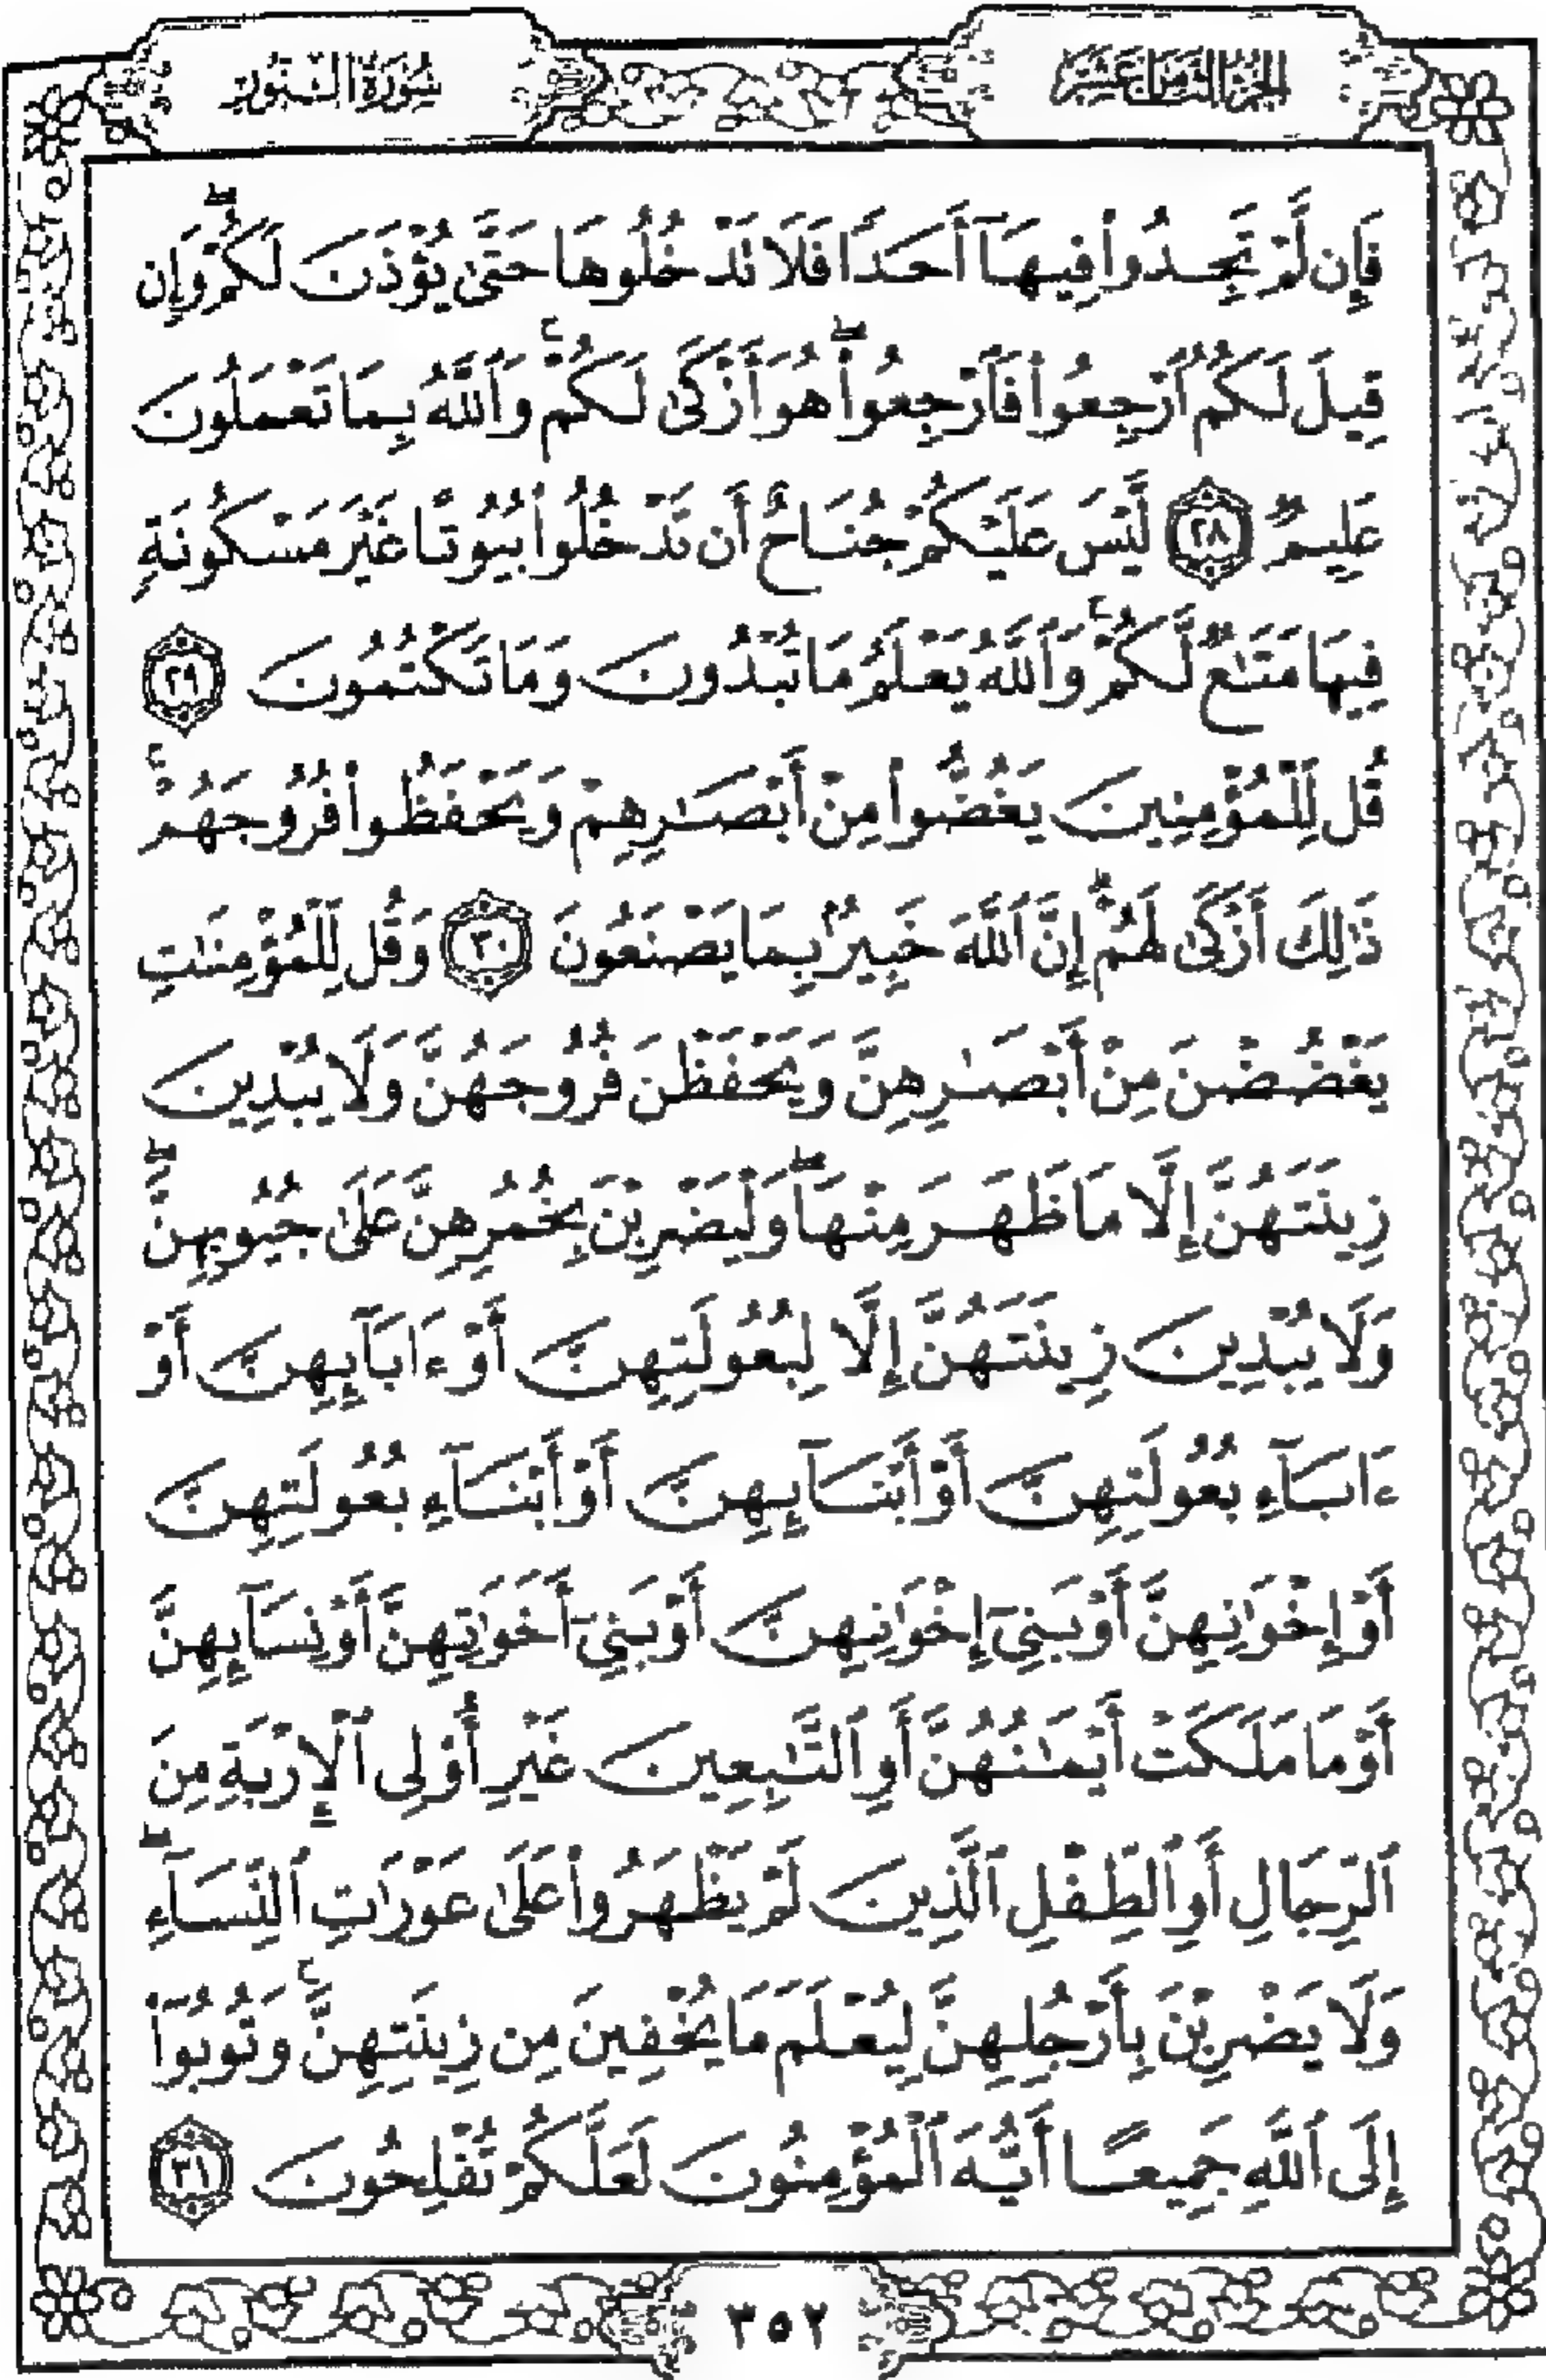 الجزء الثامن عشر
سورة النور
فَإِن لَّمْ تَجِدُوا۟ فِيهَآ أَحَدًا فَلَا تَدْخُلُوهَا حَتَّىٰ يُؤْذَنَ لَكُمْ ۖ وَإِن
قِيلَ لَكُمُ ٱرْجِعُوا۟ فَٱرْجِعُوا۟ ۖ هُوَ أَزْكَىٰ لَكُمْ ۚ وَٱللَّهُ بِمَا تَعْمَلُونَ
عَلِيمٌ ٢٨ لَّيْسَ عَلَيْكُمْ جُنَاحٌ أَن تَدْخُلُوا۟ بُيُوتًا غَيْرَ مَسْكُونَةٍ
فِيهَا مَتَـٰعٌ لَّكُمْ ۚ وَٱللَّهُ يَعْلَمُ مَا تُبْدُونَ وَمَا تَكْتُمُونَ ٢٩
قُل لِّلْمُؤْمِنِينَ يَغُضُّوا۟ مِنْ أَبْصَـٰرِهِمْ وَيَحْفَظُوا۟ فُرُوجَهُمْ ۚ
ذَٰلِكَ أَزْكَىٰ لَهُمْ ۗ إِنَّ ٱللَّهَ خَبِيرٌۢ بِمَا يَصْنَعُونَ ٣٠ وَقُل لِّلْمُؤْمِنَـٰتِ
يَغْضُضْنَ مِنْ أَبْصَـٰرِهِنَّ وَيَحْفَظْنَ فُرُوجَهُنَّ وَلَا يُبْدِينَ
زِينَتَهُنَّ إِلَّا مَا ظَهَرَ مِنْهَا ۖ وَلْيَضْرِبْنَ بِخُمُرِهِنَّ عَلَىٰ جُيُوبِهِنَّ ۖ
وَلَا يُبْدِينَ زِينَتَهُنَّ إِلَّا لِبُعُولَتِهِنَّ أَوْ ءَابَآئِهِنَّ أَوْ
ءَابَآءِ بُعُولَتِهِنَّ أَوْ أَبْنَآئِهِنَّ أَوْ أَبْنَآءِ بُعُولَتِهِنَّ
أَوْ إِخْوَٰنِهِنَّ أَوْ بَنِىٓ إِخْوَٰنِهِنَّ أَوْ بَنِىٓ أَخَوَٰتِهِنَّ أَوْ نِسَآئِهِنَّ
أَوْ مَا مَلَكَتْ أَيْمَـٰنُهُنَّ أَوِ ٱلتَّـٰبِعِينَ غَيْرِ أُو۟لِى ٱلْإِرْبَةِ مِنَ
ٱلرِّجَالِ أَوِ ٱلطِّفْلِ ٱلَّذِينَ لَمْ يَظْهَرُوا۟ عَلَىٰ عَوْرَٰتِ ٱلنِّسَآءِ ۖ
وَلَا يَضْرِبْنَ بِأَرْجُلِهِنَّ لِيُعْلَمَ مَا يُخْفِينَ مِن زِينَتِهِنَّ ۚ وَتُوبُوٓا۟
إِلَى ٱللَّهِ جَمِيعًا أَيُّهَ ٱلْمُؤْمِنُونَ لَعَلَّكُمْ تُفْلِحُونَ ٣١
٣٥٢